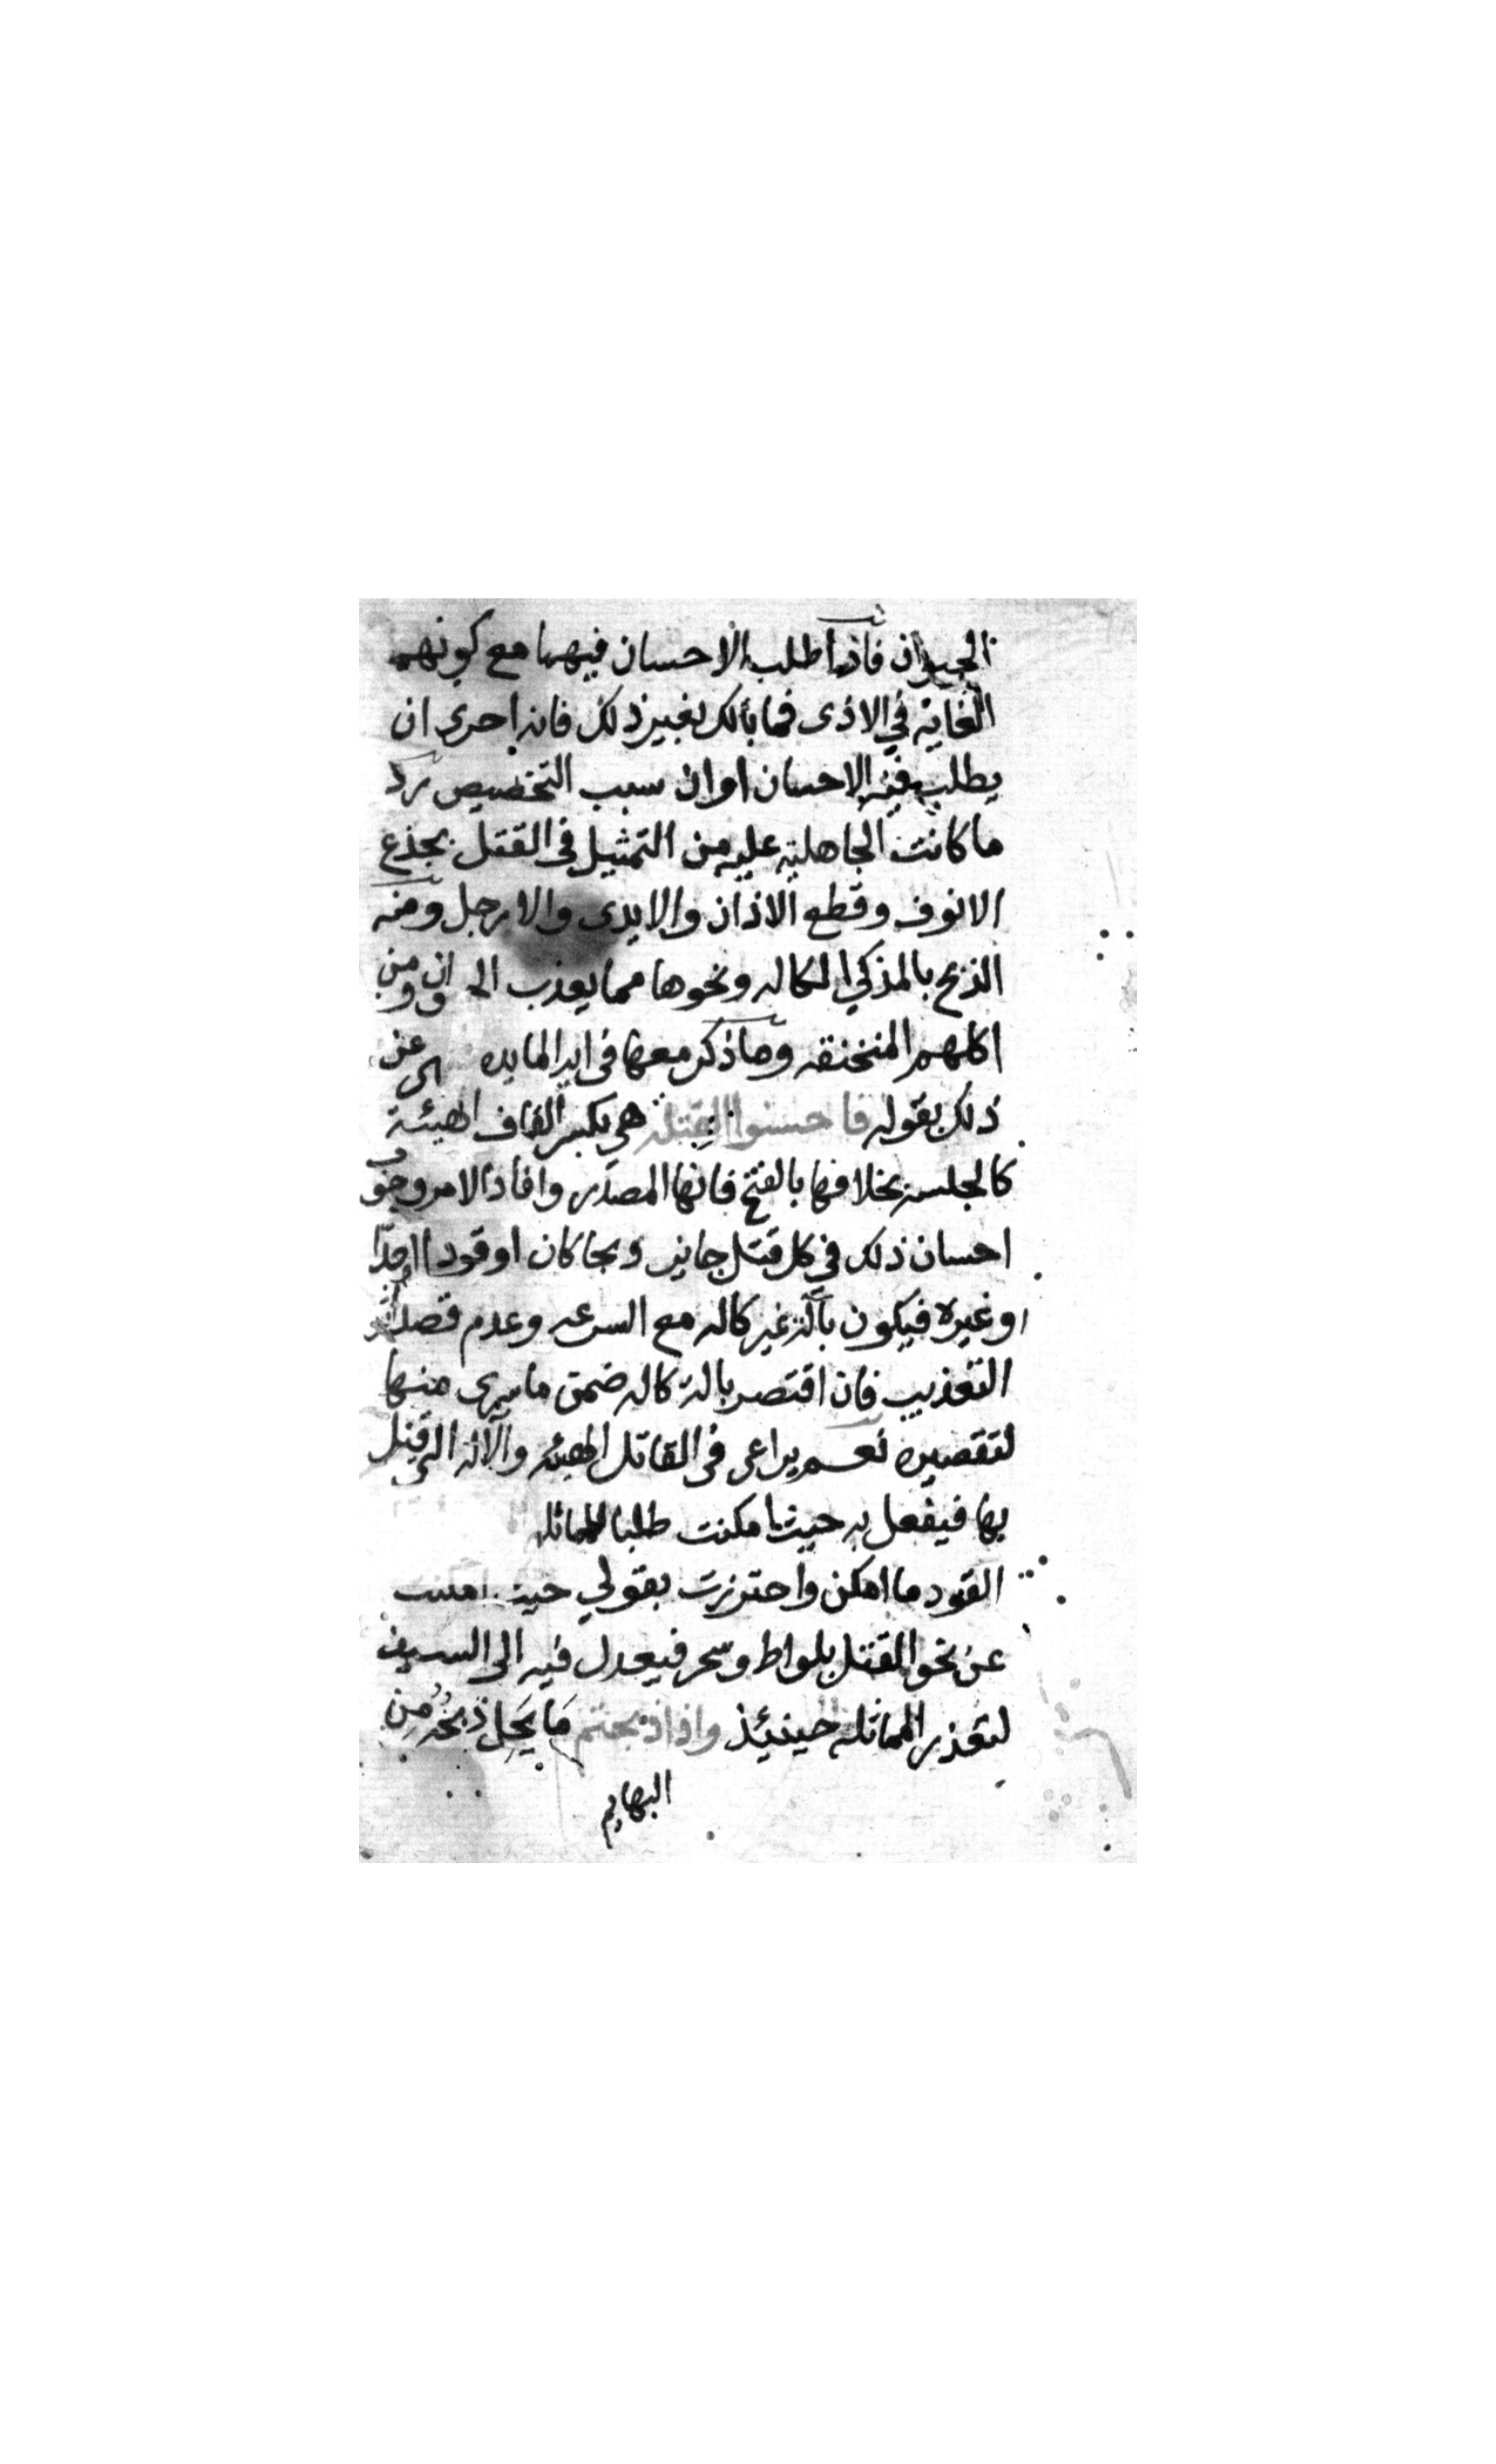 الحيوان فاذا طلب الاحسان فيهما مع كونهما
الغاية في الاذى فما بألك بغير ذلك فانه احرى ان
يطلب فيه الاحسان او ان سبب التخصيص رد
ما كانت الجاهلية عليه من التمثيل في القتل بجذع
الانوف وقطع الاذان والايدى والارجل ومنه
الذبح بالمذكي الكاله ونحوها مما يعذب الحـ ان ومن
اكلهم المنخنقه وما ذكر معها في ايه المايده عن
ذلك بقوله فاحسنوا القتلة هي بكسر القاف الهيئة
كالجلسة بخلافها بالفتح فانها المصدر وافاد الامر وجوب
احسان ذلك في كل قتل جايز كان او قودا او حدا
او غيره فيكون بآلة غير كاله مع السرعه وعدم قصد
التعذيب فان اقتصر بالة كاله ضمن ما سرى منها
لتقصيره نعم يراعى في القاتل الهيئه والآلة التى قتل
بها فيفعل به حيث امكنت طلبا للمماثله
القود ما امكن واحترزت بقولي حيث امكنت
عن نحو القتل بلواط وسحر فيعدل فيه الى السيف
لتعذر المماثلة حينئذ واذا ذبحتم مَا يَحِل ذبحُهُ مِن
البهايم